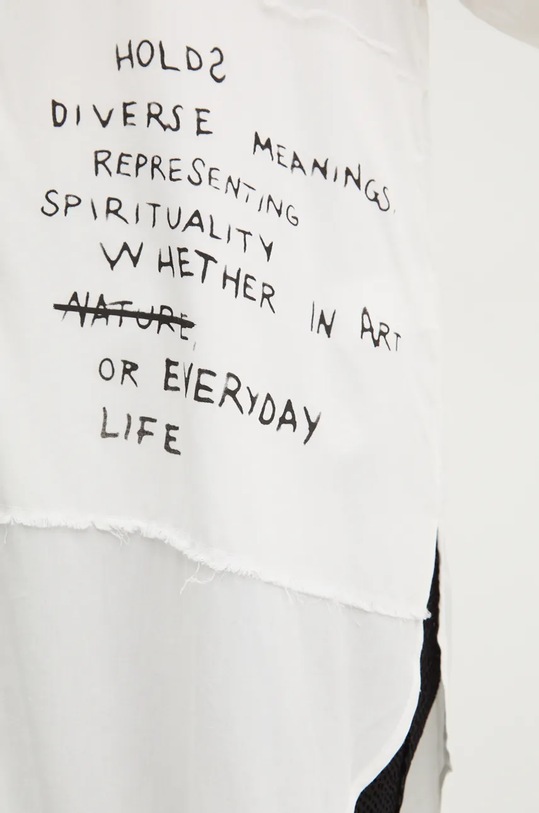 HOLDS
DIVERSE MEANINGS.
REPRESENTING
SPIRITUALITY
WHETHER IN ART
NATURE,
OR EVERYDAY
LIFE